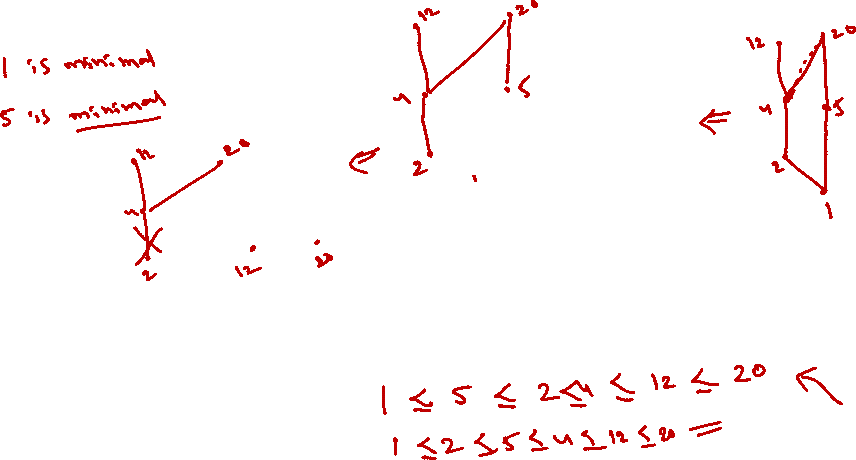 1 is minimal
5 is minimal
12 20
4 5
2
12 20
4 5
2
1
12 20
4
2
12 20
1 ≤ 5 ≤ 2 ≤ 4 ≤ 12 ≤ 20
1 ≤ 2 ≤ 5 ≤ 4 ≤ 12 ≤ 20